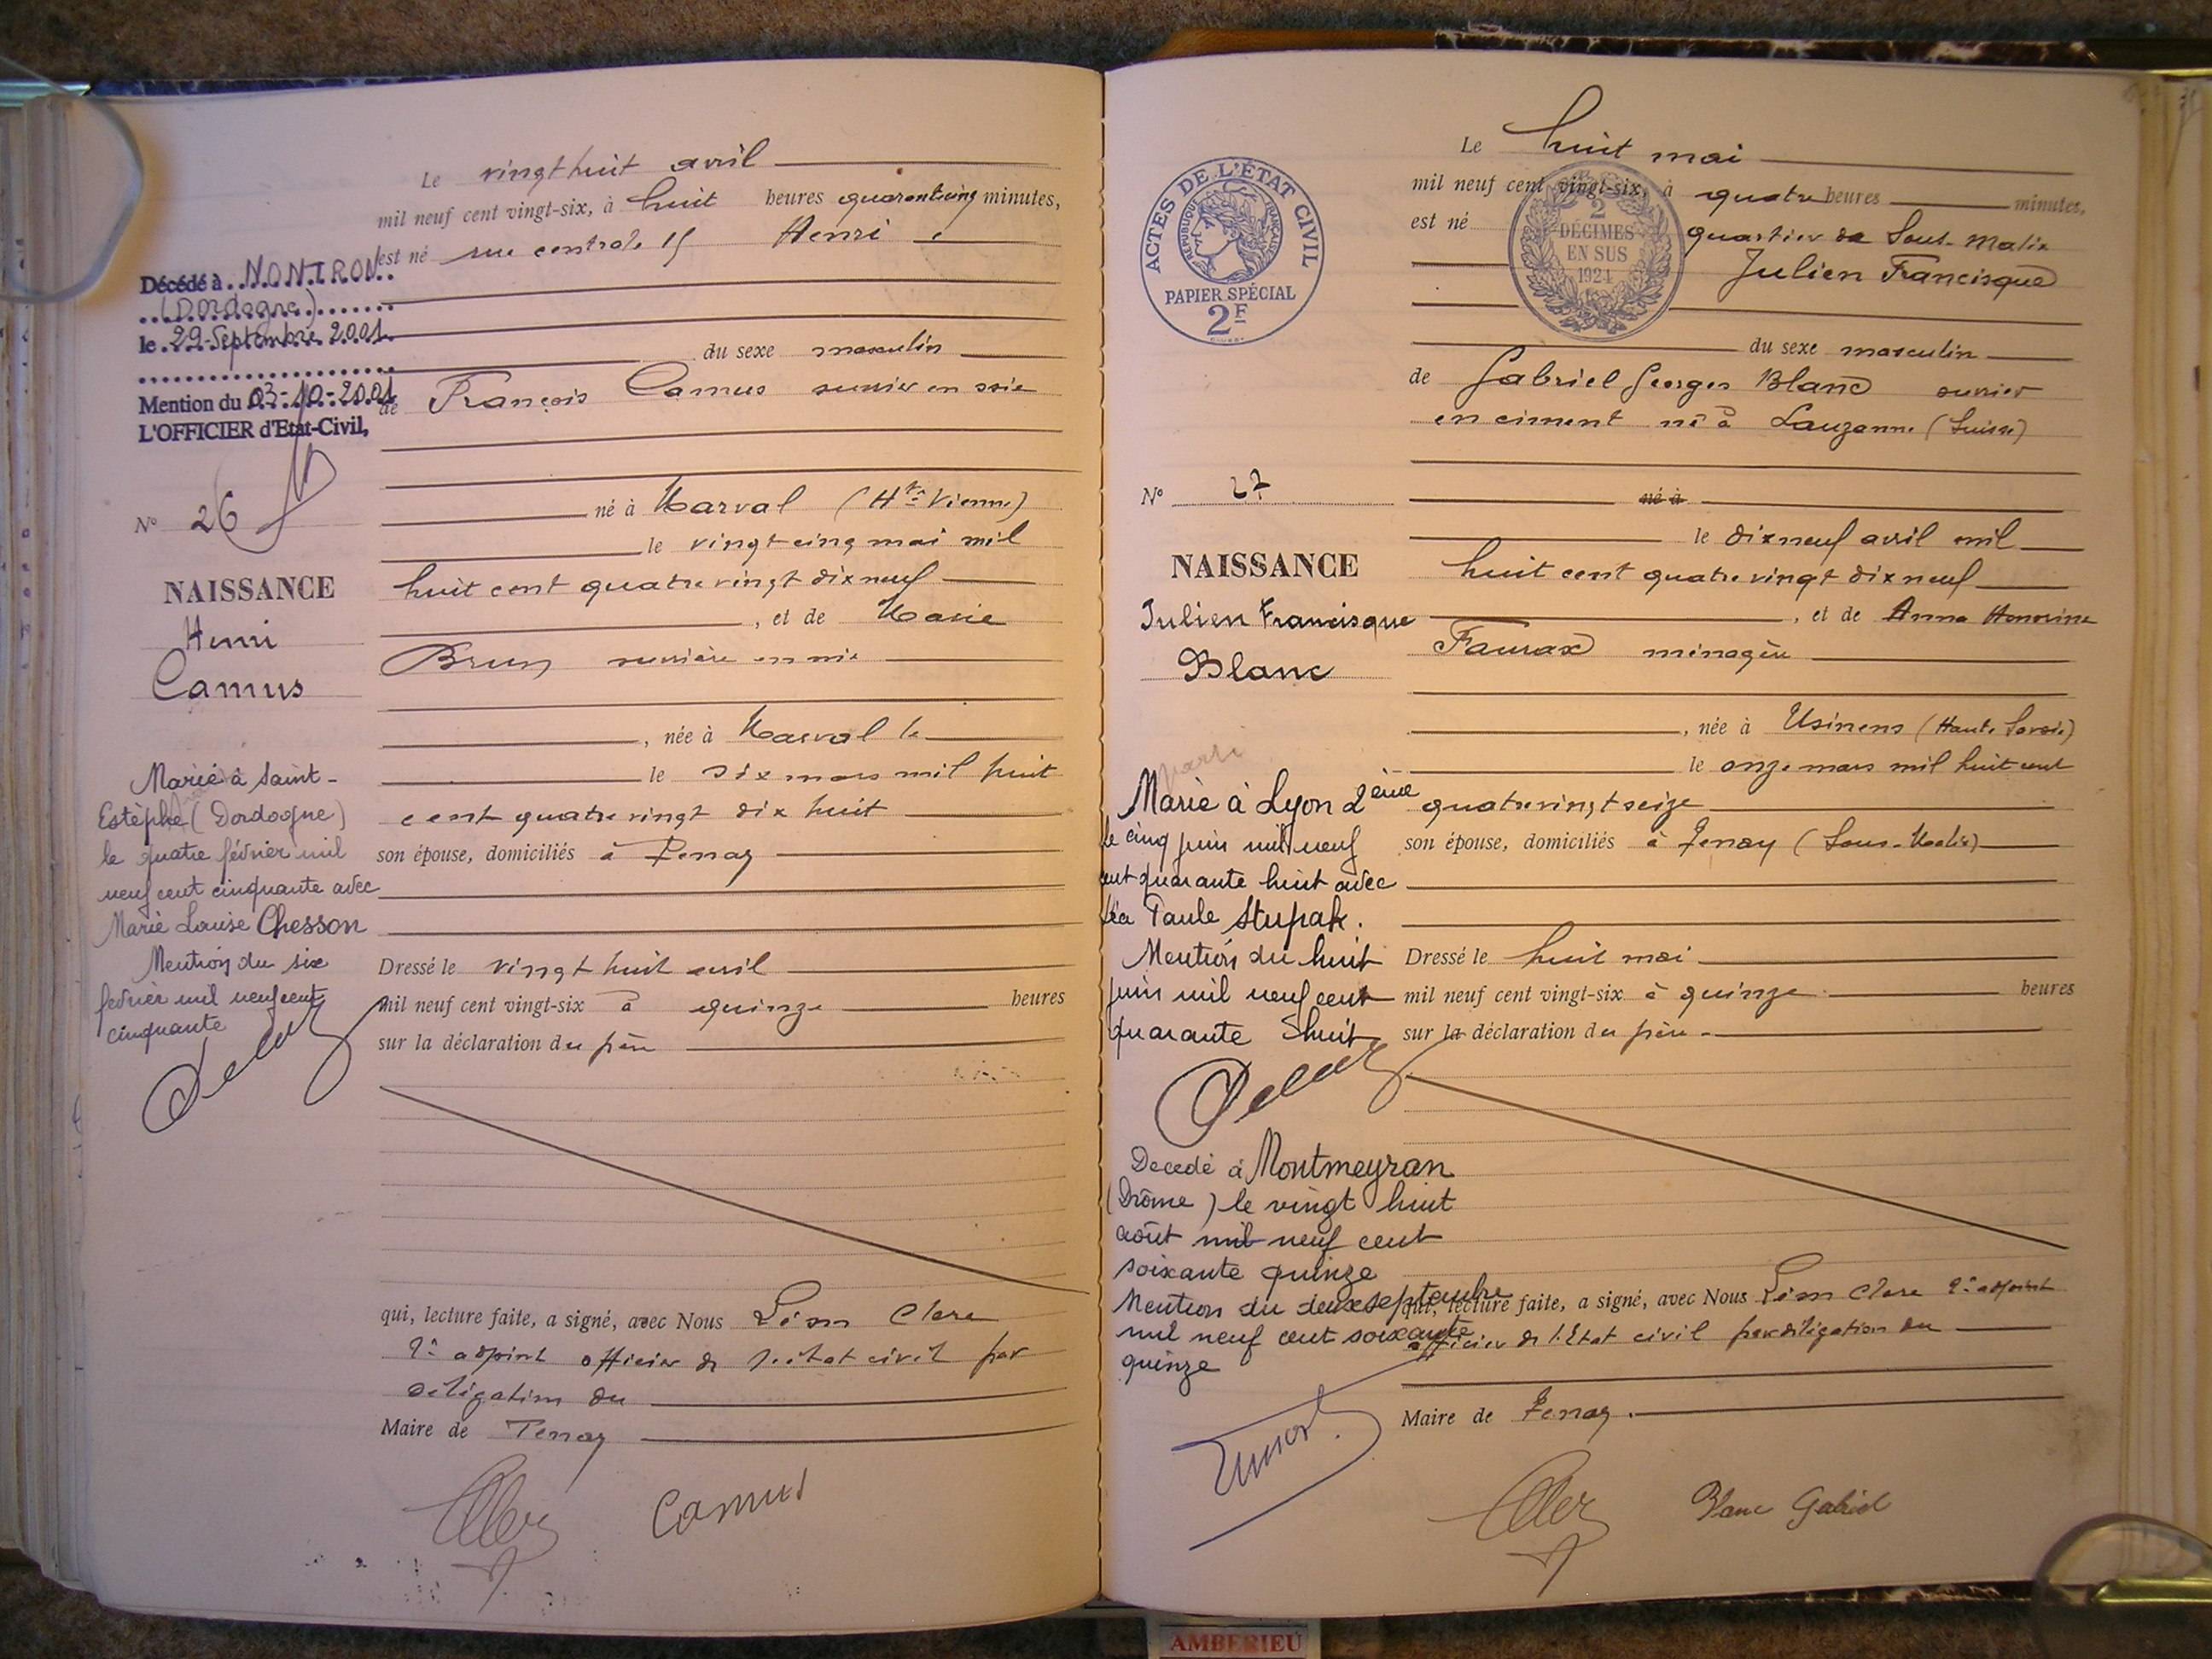 Le vingt huit avril
mil neuf cent vingt-six, à huit heures quarantecinq minutes,
est né rue centrale 15 Henri
du sexe masculin
de François Camus ouvrier en soie
né à Marval (Hte Vienne)
le vingt cinq mai mil
huit cent quatre vingt dix neuf
, et de Marie
Brun ouvrière en soie
, née à Marval le
le six mars mil huit
cent quatre vingt dix huit
son épouse, domiciliés à Tenay
Dressé le vingt huit avril
mil neuf cent vingt-six à quinze heures
sur la déclaration du père
qui, lecture faite, a signé, avec Nous Léon Clerc
2e adjoint officier de l'état civil par
délégation du
Maire de Tenay
Camus
Décédé à NONTRON
(Dordogne)
le 29 Septembre 2001
Mention du 03-10-2001
L'OFFICIER d'Etat-Civil,
N° 26
NAISSANCE
Henri
Camus
Marié à Saint-
Estèphe (Dordogne)
le quatre février mil
neuf cent cinquante avec
Marie Louise Chesson
Mention du six
février mil neuf cent
cinquante
ACTES DE L'ÉTAT CIVIL
RÉPUBLIQUE FRANÇAISE
PAPIER SPÉCIAL
2F
2
DÉCIMES
EN SUS
1924
Le huit mai
mil neuf cent vingt-six, à quatre heures minutes,
est né quartier de Sous-Malix
Julien Francisque
du sexe masculin
de Gabriel Georges Blanc ouvrier
en ciment né à Lauzanne (Suisse)
né à
le dix neuf avril mil
huit cent quatre vingt dix neuf
, et de Anna Honorine
Faurax ménagère
, née à Usinens (Haute Savoie)
le onze mars mil huit cent
quatre vingt seize
son épouse, domiciliés à Tenay (Sous-Malix)
Dressé le huit mai
mil neuf cent vingt-six à quinze heures
sur la déclaration du père
qui, lecture faite, a signé, avec Nous Léon Clerc 2e adjoint
officier de l'Etat civil par délégation du
Maire de Tenay.
Blanc Gabriel
N° 27
NAISSANCE
Julien Francisque
Blanc
Marié à Lyon 2ème
le cinq juin mil neuf
cent quarante huit avec
Léa Paule Stupak.
Mention du huit
juin mil neuf cent
quarante huit
Decedé à Montmeyran
(Drôme) le vingt huit
août mil neuf cent
soixante quinze
Mention du deux septembre
mil neuf cent soixante
quinze
AMBERIEU